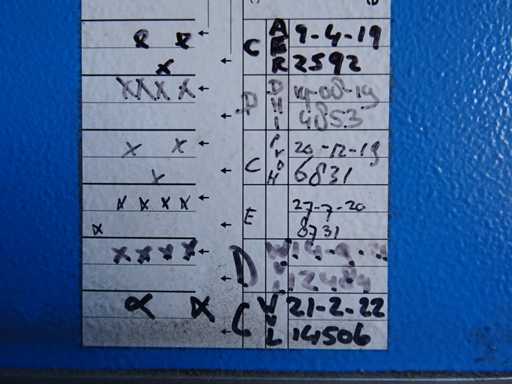 C AER 9-4-19
2592
P DHI 14-08-19
4853
C PVOH 20-12-19
6831
E 27-7-20
8731
D
12484
C VVL 21-2-22
14506